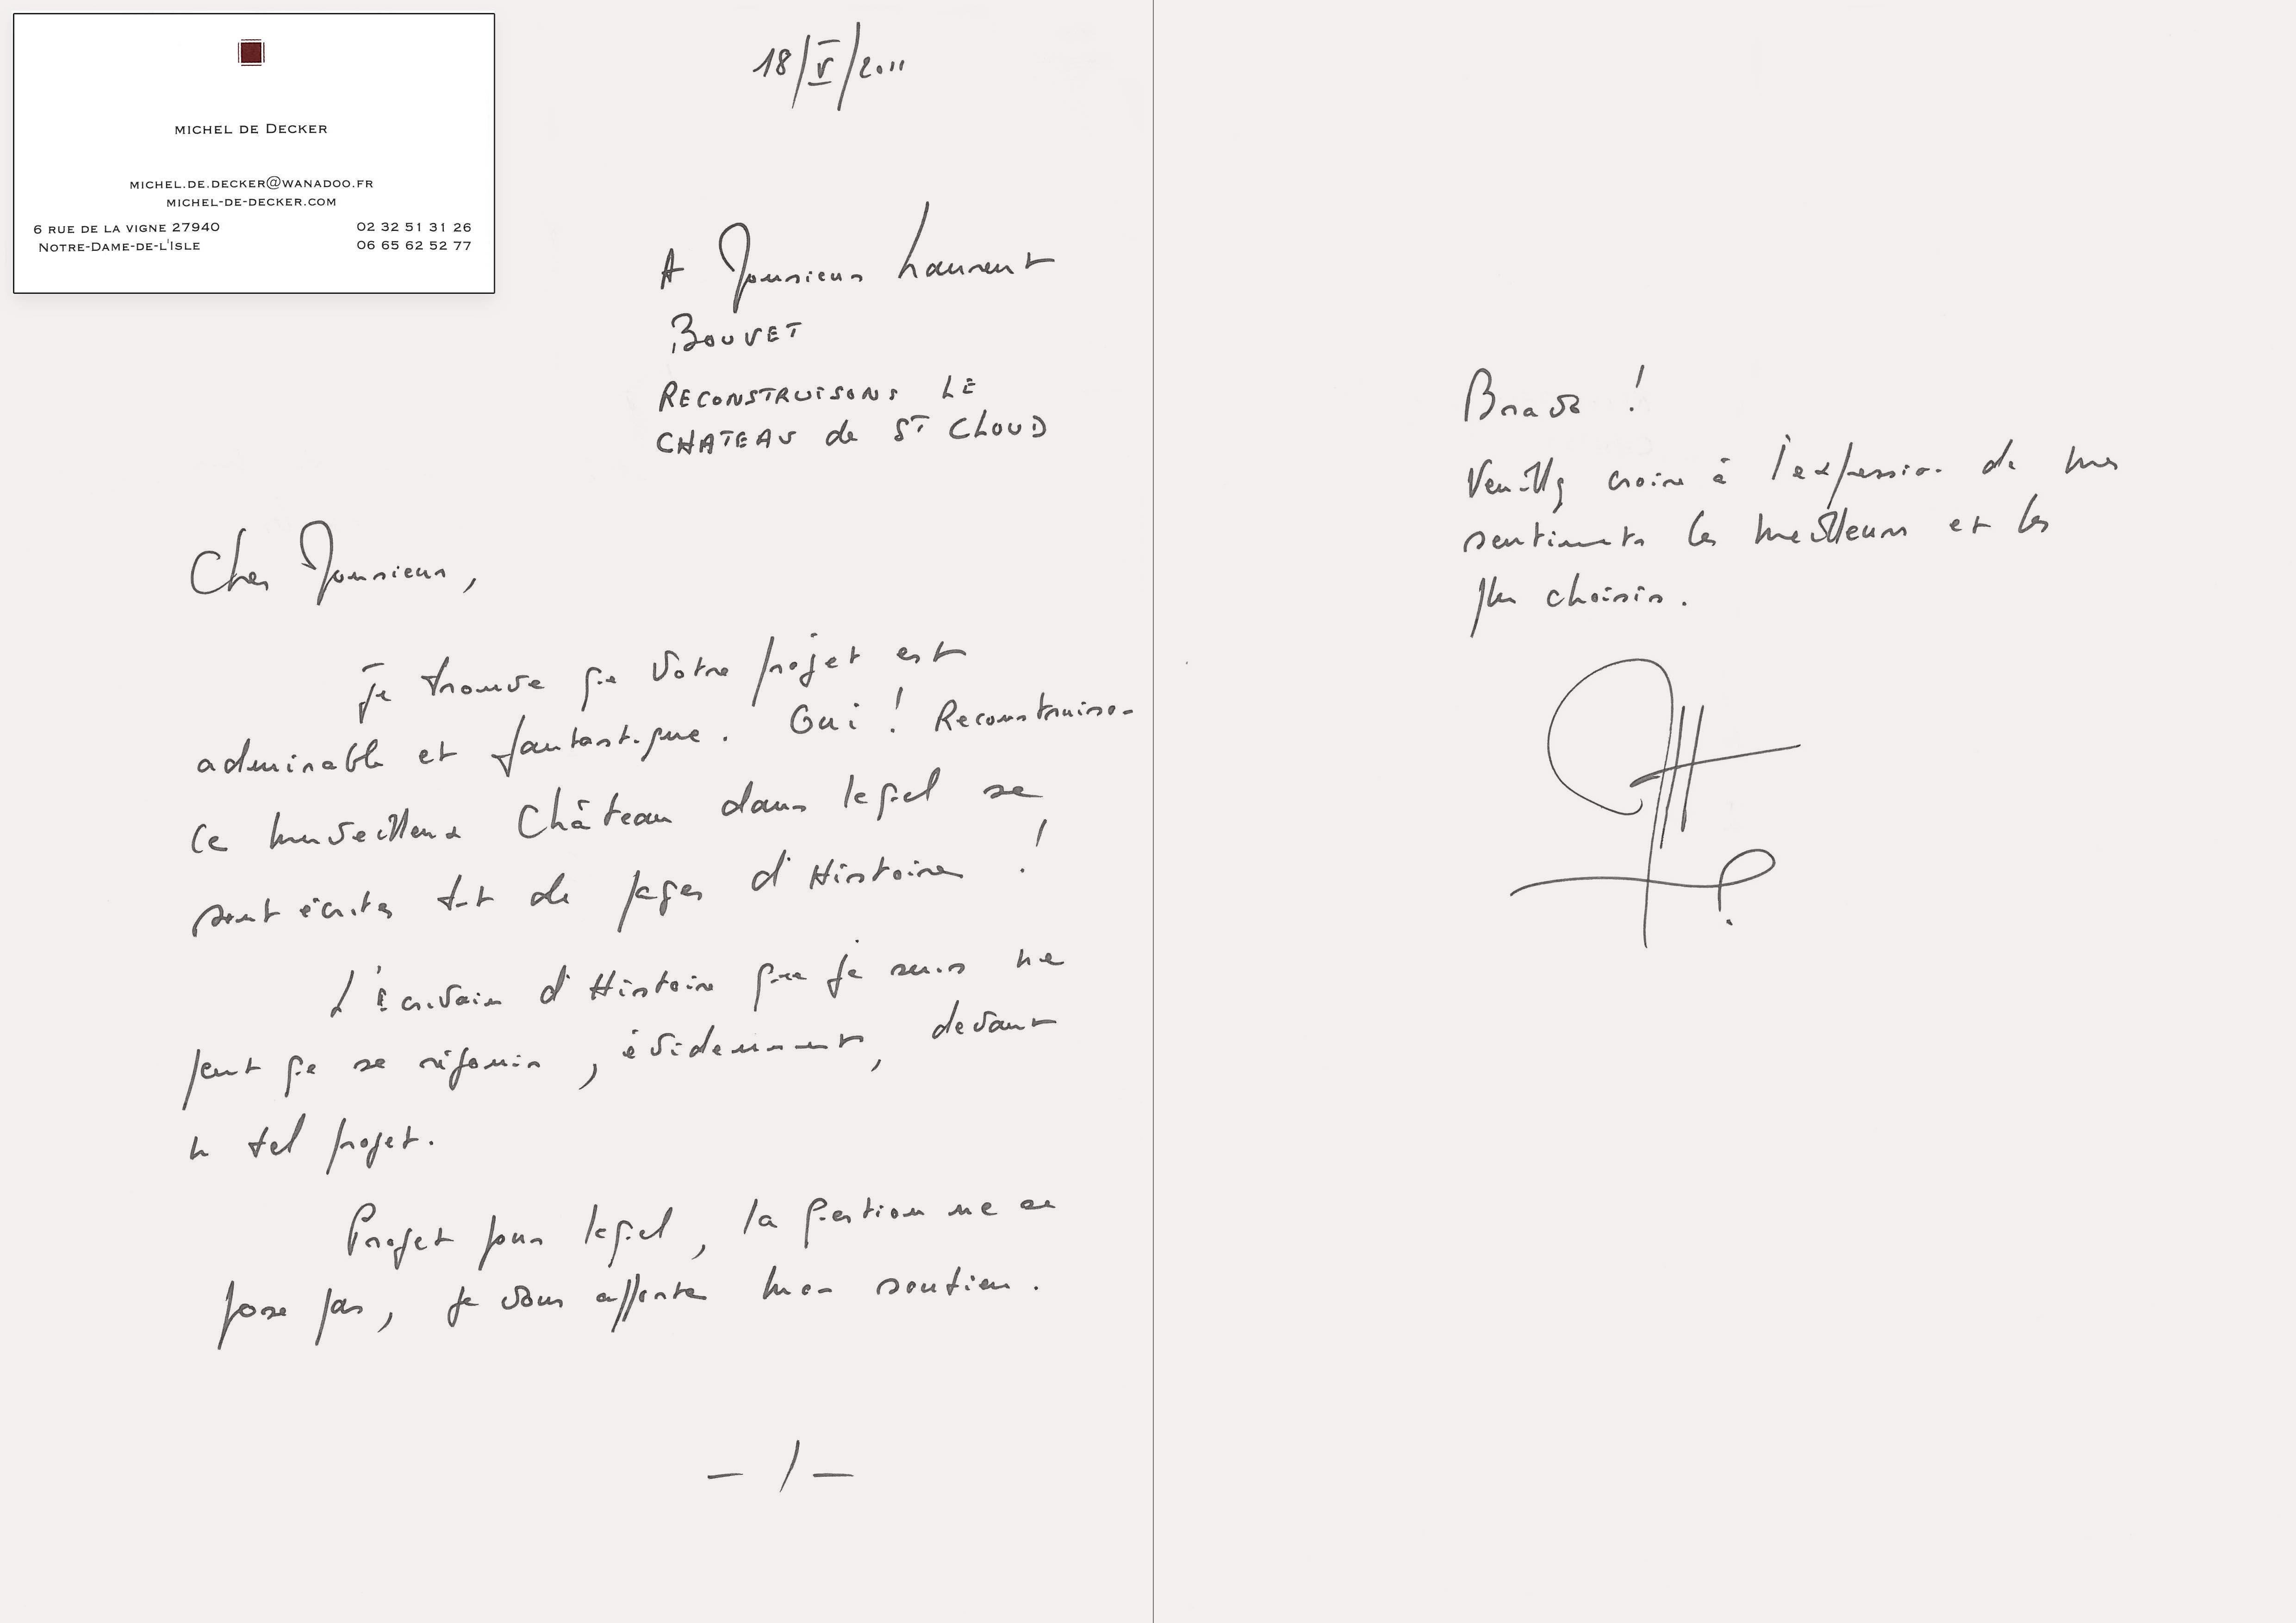 MICHEL DE DECKER
MICHEL.DE.DECKER@WANADOO.FR
MICHEL-DE-DECKER.COM
6 RUE DE LA VIGNE 27940
NOTRE-DAME-DE-L'ISLE
02 32 51 31 26
06 65 62 52 77
18/V/2011
A Monsieur Laurent
BOUVET
RECONSTRUISONS LE
CHATEAU de ST CLOUD
Cher Monsieur,
Je trouve que votre projet est
admirable et fantastique. Oui ! Reconstruisons
ce merveilleux Château dans lequel se
sont écrites tant de pages d'Histoire !
L'écrivain d'Histoire que je suis ne
peut que se réjouir, évidemment, devant
un tel projet.
Projet pour lequel, la question ne se
pose pas, je vous apporte mon soutien.
– / –
Bravo !
Veuillez croire à l'expression de mes
sentiments les meilleurs et les
plus choisis.